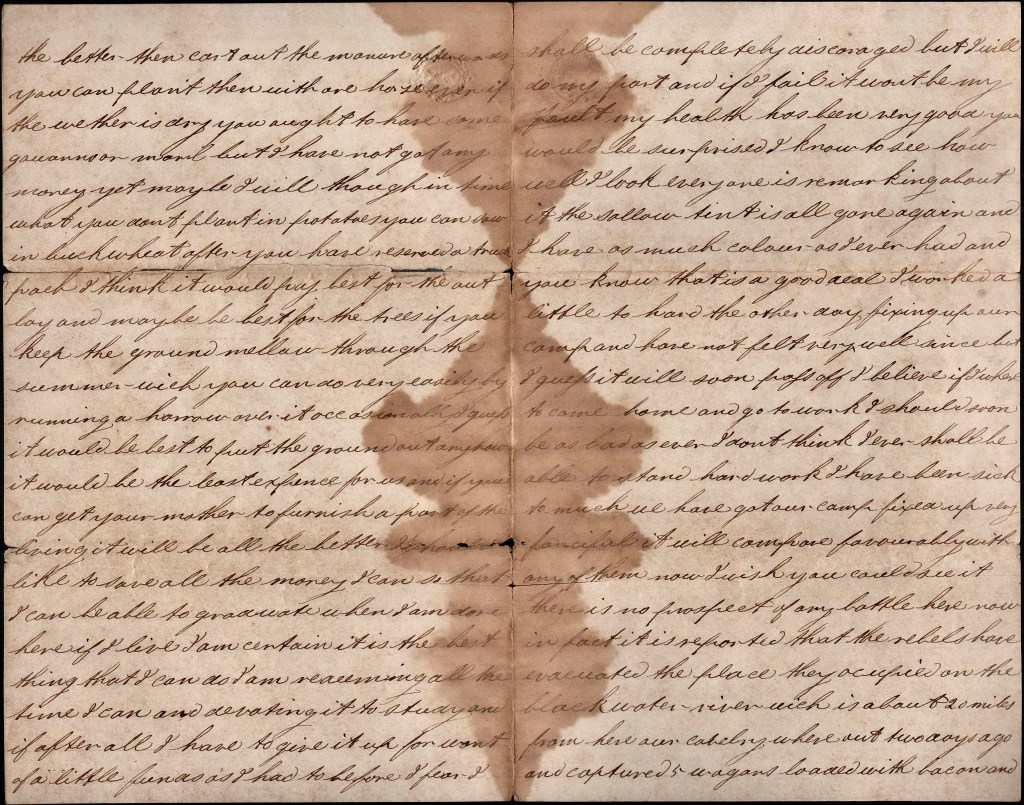 the better then cart out the manure afterwards
you can plant then with one horse even if
the wether is dry you aught to have some
gauanno or marl but I have not got any
money yet maybe I will though in time
what you dont plant in potatoes you can sow
in buckwheat after you have reserved a truck
pach I think it would pay best for the out
lay and maybe be best for the trees if you
keep the ground mellow through the
summer wich you can do very easily by
running a harrow over it occasionally I guess
it would be best to put the ground out anyhow
it would be the least expence for us and if you
can get your mother to furnish a part of the
living it will be all the better I should
like to save all the money I can so that
I can be able to graduate when I am done
here if I live I am certain it is the best
thing that I can do I am reaceming all the
time I can and devoting it to study and
if after all I have to give it up for want
of a little funds as I had to before I fear I
shall be completely discoraged but I will
do my part and if I fail it wont be my
fault my health has been very good you
would be surprised I know to see how
well I look everyone is remarking about
it the sallow tint is all gone again and
I have as much colour as I ever had and
you know that is a good deal I worked a
little to hard the other day fixing up our
camp and have not felt very well since but
I guess it will soon pass off I believe if I where
to come home and go to work I should soon
be as bad as ever I dont think I ever shall be
able to stand hard work I have been sick
to much we have got our camp fixed up very
fanciful it will compare favourably with
any of them now I wish you could see it
there is no prospect of any battle here now
in fact it is reported that the rebels have
evacuated the place they ocupied on the
black water river wich is about 20 miles
from here our cabelry where out two days ago
and captured 5 wagans loaded with bacon and